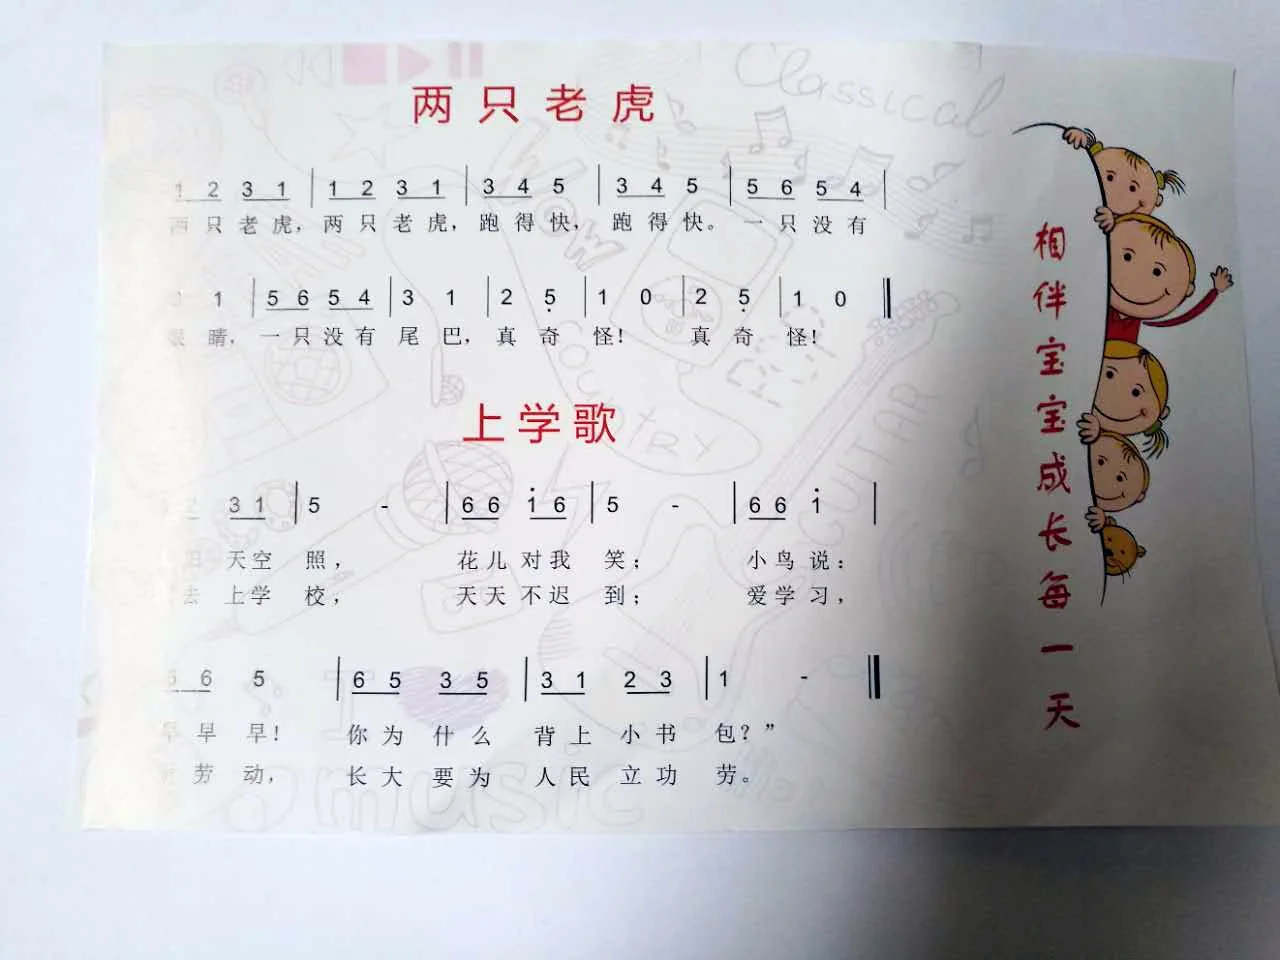 两只老虎
1 2 3 1 | 1 2 3 1 | 3 4 5 | 3 4 5 | 5 6 5 4 |
两只老虎，两只老虎，跑得快，跑得快。一只没有
1 | 5 6 5 4 | 3 1 | 2 5̣ | 1 0 | 2 5̣ | 1 0 ‖
睛，一只没有尾巴，真奇怪！真奇怪！
上学歌
3 1 | 5 - | 6 6 1̇ 6 | 5 - | 6 6 1̇ |
天空照，花儿对我笑；小鸟说：
去上学校，天天不迟到；爱学习，
5 6 5 | 6 5 3 5 | 3 1 2 3 | 1 - ‖
早早早！你为什么背上小书包？”
劳动，长大要为人民立功劳。
相伴宝宝成长每一天
Classical
WOW
COUNTRY
GUITAR
I
music